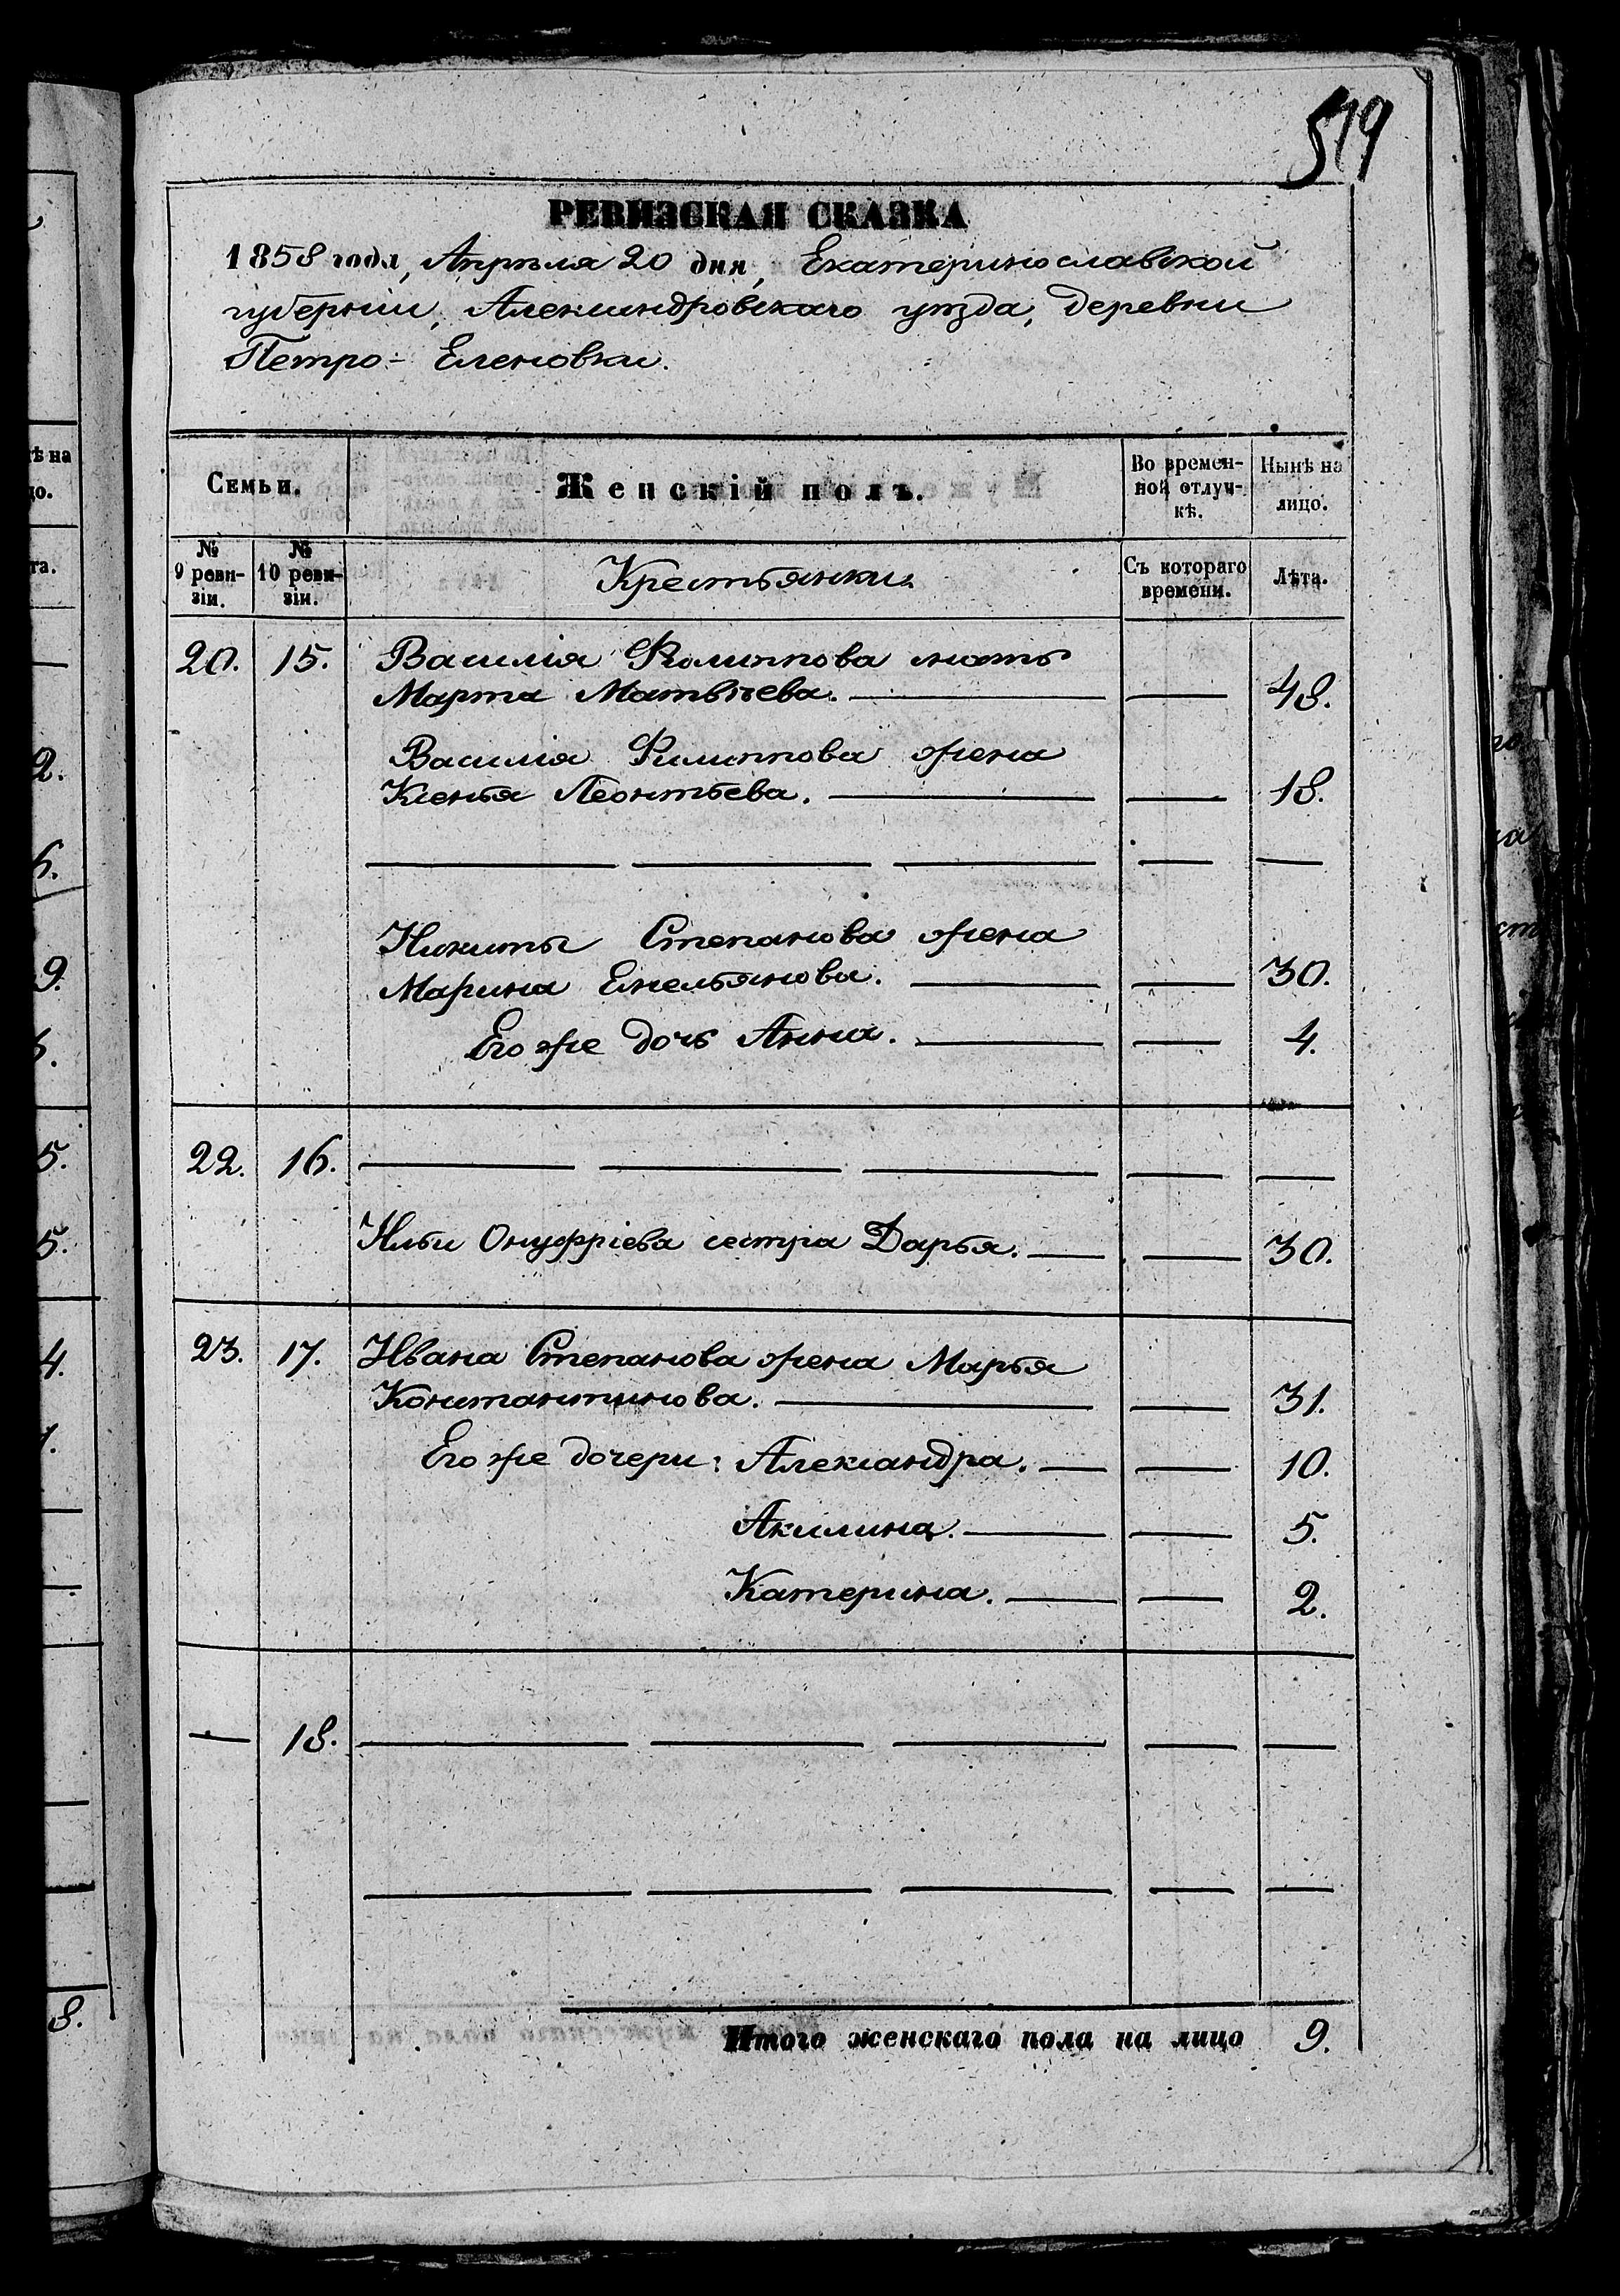 519
РЕВИЗСКАЯ СКАЗКА
1858 года, Апрѣля 20 дня, Екатеринославской
губерніи, Александровскаго уѣзда, деревни
Петро-Еленовки.
Семьи. Женскій полъ. Во времен-ной отлуч-кѣ. Нынѣ на лицо.
№ 9 реви-зіи. № 10 реви-зіи. Крестьянки. Съ котораго времени. Лѣта.
20. 15. Василія Филиппова мать
Марта Матвѣева. — — 48.
Василія Филиппова жена
Ксенья Леонтьева. — — 18.
— — — — —
Никиты Степанова жена
Марина Емельянова. — — 30.
Его же дочь Анна. — — 4.
22. 16. — — — — —
Ильи Онуфріева сестра Дарья. — — 30.
23. 17. Ивана Степанова жена Марья
Константинова. — — 31.
Его же дочери: Александра. — — 10.
Акилина. — — 5.
Катерина. — — 2.
— 18. — — — — —
— — — — —
Итого женскаго пола на лицо 9.
ѣ на
цо.
та.
2.
6.
9.
5.
5.
4.
1.
8.